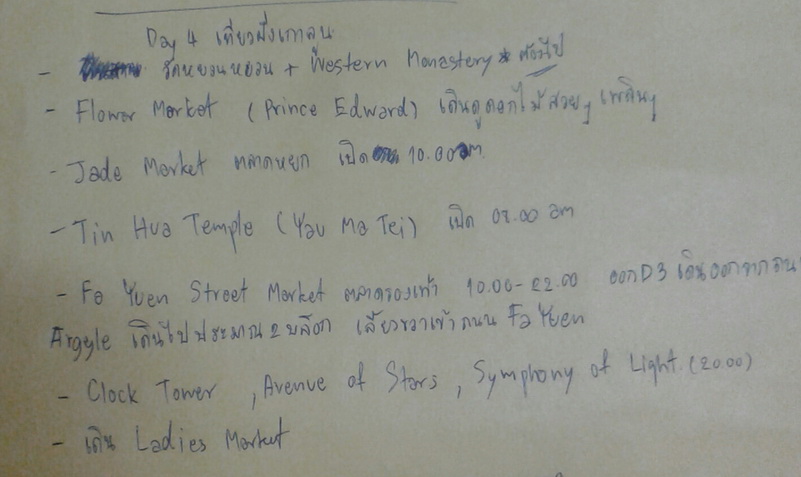 Day 4 เที่ยวฝั่งเกาลูน
- วัดหยวนหยวน + Western Monastery * ต้องไป
- Flower Market (Prince Edward) เดินดูดอกไม้สวยๆ เพลินๆ
- Jade Market ตลาดหยก เปิด 10.00 am
- Tin Hua Temple (Yau Ma Tei) เปิด 08.00 am
- Fa Yuen Street Market ตลาดรองเท้า 10.00-22.00 ออก D3 เดินออกจากถนน
Argyle เดินไปประมาณ 2 บล็อก เลี้ยวขวาเข้าถนน Fa Yuen
- Clock Tower, Avenue of Stars, Symphony of Light (20.00)
- เดิน Ladies Market